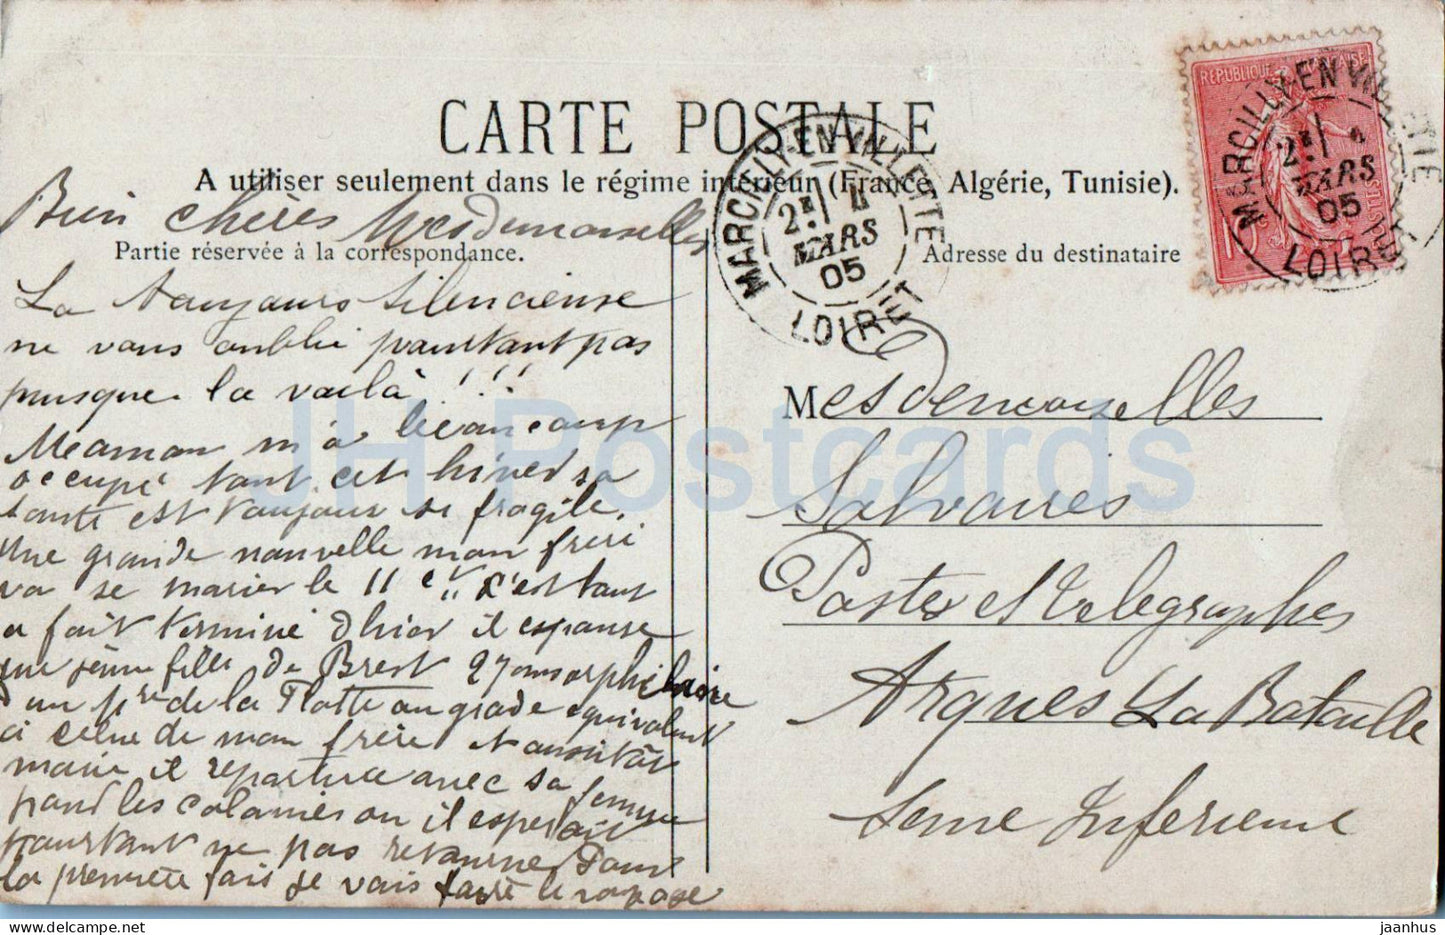 CARTE POSTALE
A utiliser seulement dans le régime intérieur (France, Algérie, Tunisie).
Partie réservée à la correspondance.
Adresse du destinataire
REPUBLIQUE FRANÇAISE
POSTES
MARCILLY-EN-VILLETTE
2E 4
MARS
05
LOIRET
MARCILLY-EN-VILLETTE
2E
MARS
05
LOIRET
Bien chères Mesdemoiselles
La toujours silencieuse
ne vous oublie pourtant pas
puisque la voilà !!!
Meaman m'a beaucoup
occupé tout cet hiver sa
santé est toujour si fragile.
Une grande nouvelle mon frere
va se marier le 11 ct c'est tout
a fait terminé d'hier il espouse
une jeune fille de Brest 27 ans orpheline
d'un 1er de la Flotte au grade equivalent
a celui de mon frère et aussitôt
marié il repartira avec sa femme
pour les colonies ou il esperait
pourtant ne pas retourner. Pour
la première fois je vais faire le voyage
Mesdemoiselles
Salvaires
Postes et telegraphes
Arques La Bataille
Seine Inferieure
JH Postcards
jaanhus